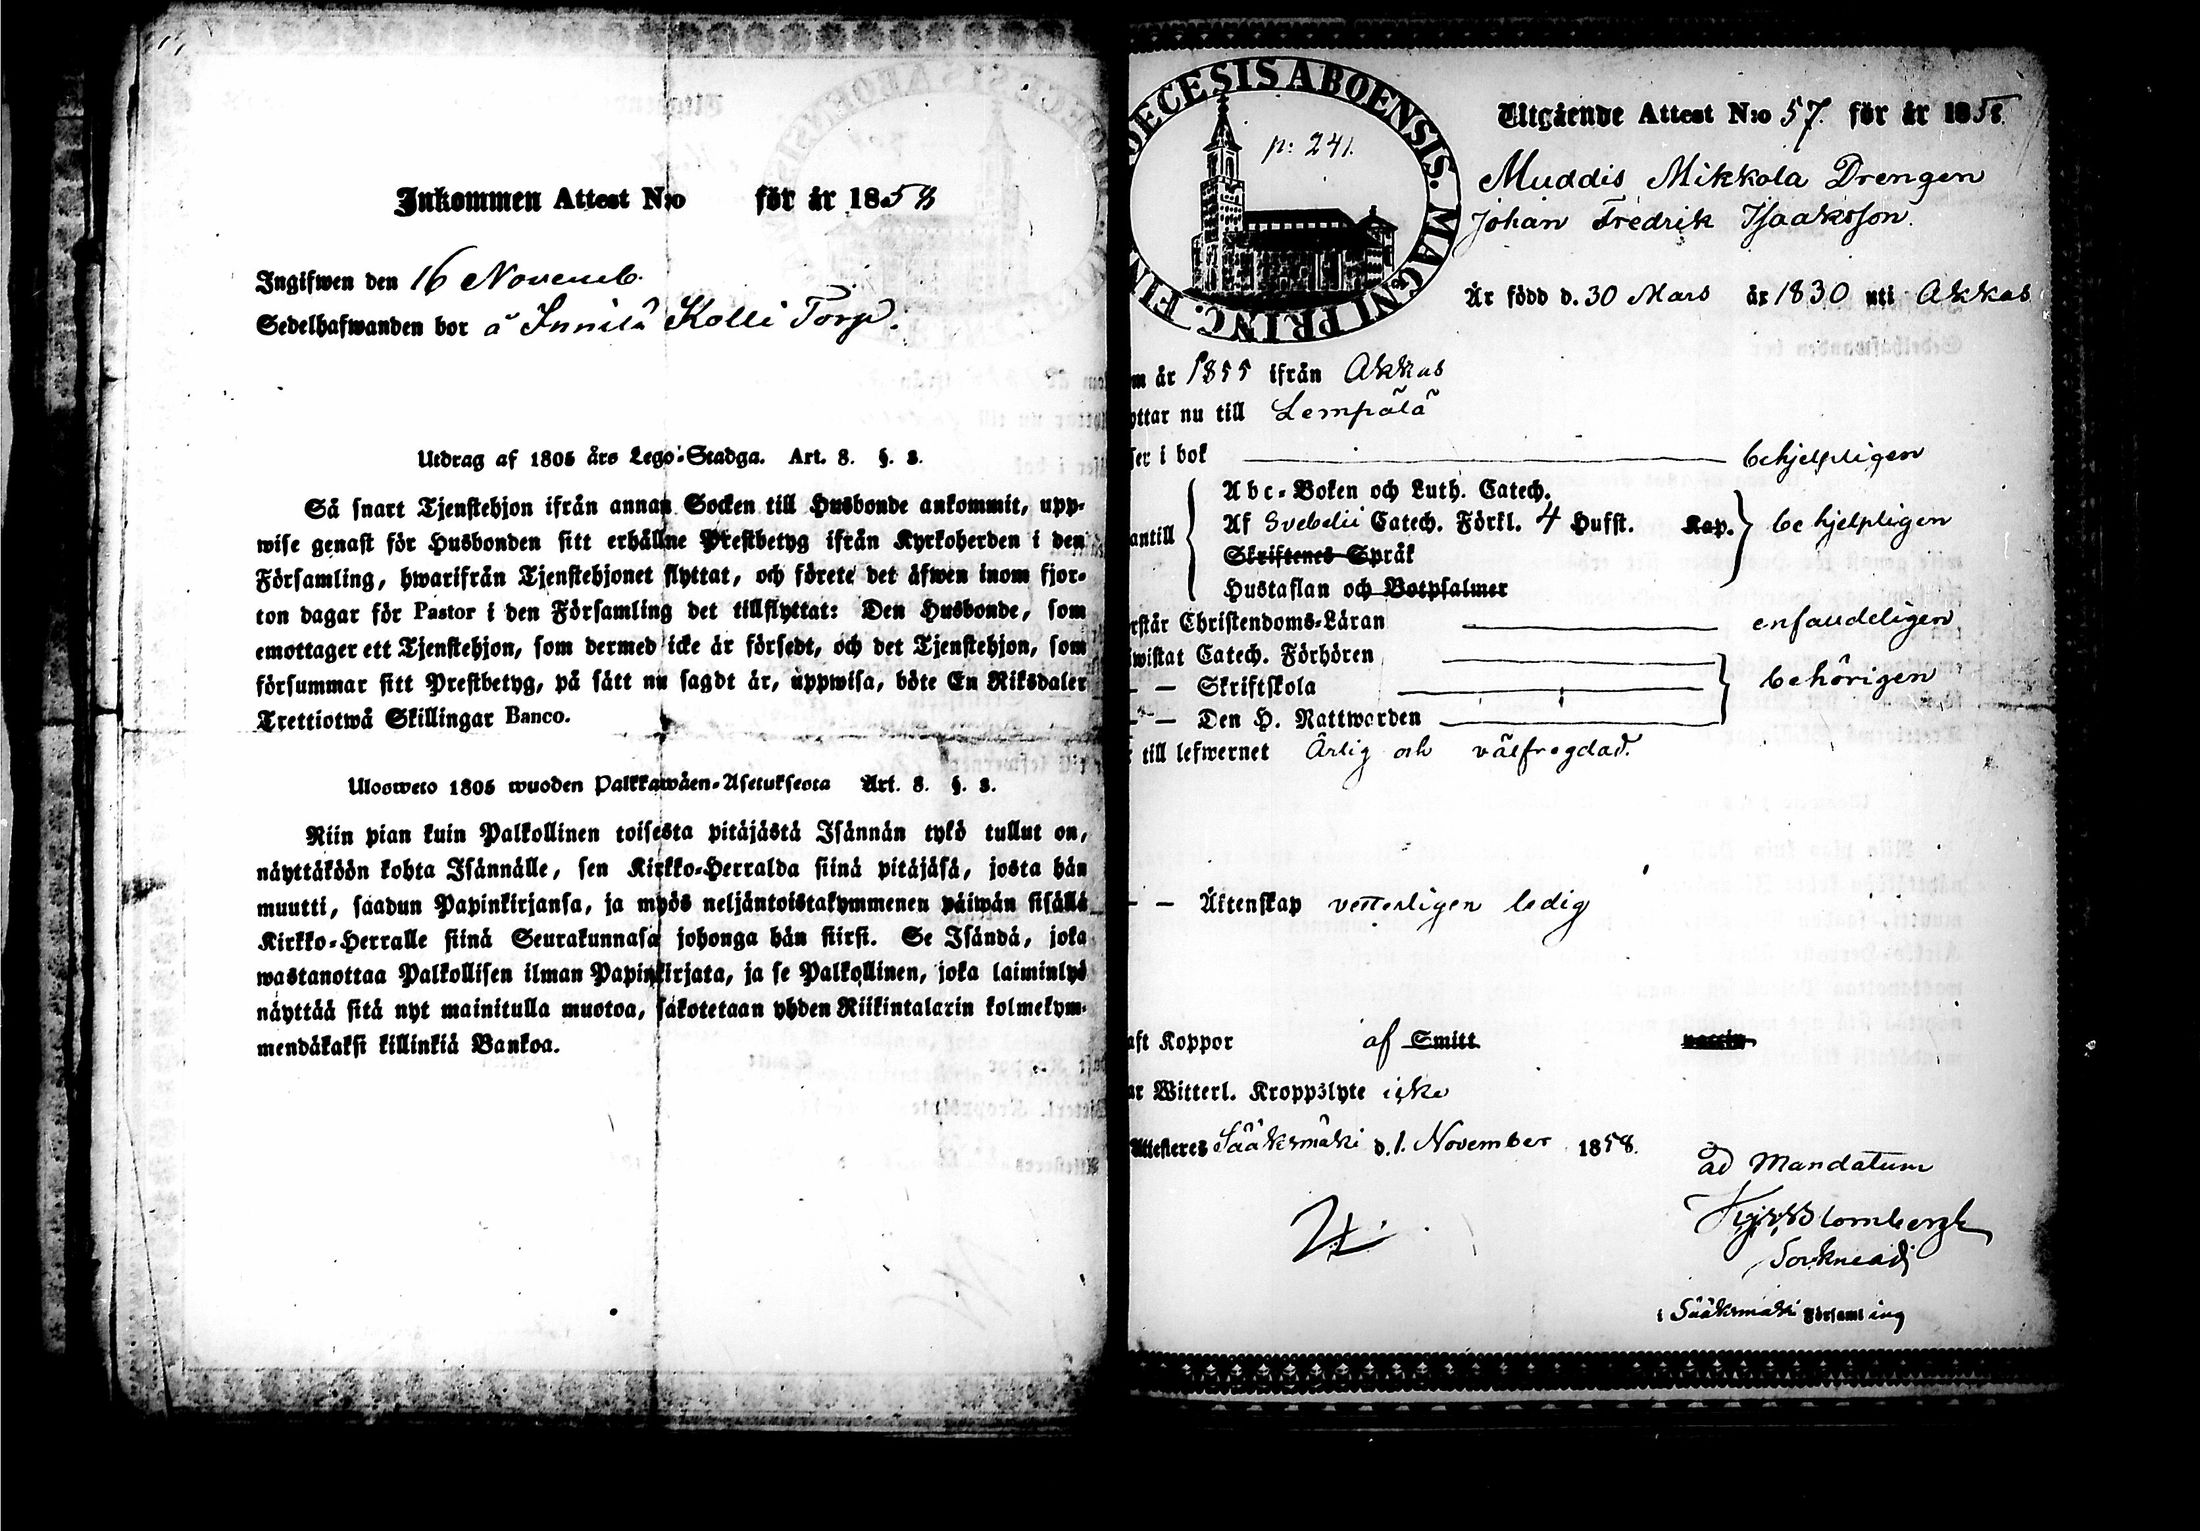 Inkommen Attest N:o för år 1858
Ingifwen den 16 Novemb.
Sedelhafwanden bor å Innilä Kolli Torp.
Utdrag af 1805 års Lego-Stadga. Art. 8. §. 3.
Så snart Tjenstehjon ifrån annan Socken till Husbonde ankommit, upp-
wise genast för Husbonden sitt erhållne Prestbetyg ifrån Kyrkoherden i den
Församling, hwarifrån Tjenstehjonet flyttat, och förete det äfwen inom fjor-
ton dagar för Pastor i den Församling det tillflyttat: Den Husbonde, som
emottager ett Tjenstehjon, som dermed icke är försedt, och det Tjenstehjon, som
försummar sitt Prestbetyg, på sätt nu sagdt är, uppwisa, böte En Riksdaler
Trettiotwå Skillingar Banco.
Ulosweto 1805 wuoden Palkkawäen-Asetuksesta Art. 8. §. 3.
Niin pian kuin Palkollinen toisesta pitäjästä Isännän tykö tullut on,
näyttäköön kohta Isännälle, sen Kirkko-Herralda siinä pitäjäsä, josta hän
muutti, saadun Papinkirjansa, ja myös neljäntoistakymmenen päiwän sisällä
Kirkko-Herralle siinä Seurakunnasa johonga hän siirsi. Se Isändä, joka
wastanottaa Palkollisen ilman Papinkirjata, ja se Palkollinen, joka laiminlyö
näyttää sitä nyt mainitulla muotoa, sakotetaan yhden Riikintalarin kolmekym-
mendäkaksi killinkiä Bankoa.
DECESIS ABOENSIS. MAGNI PRINC. FIN
p: 241.
Utgående Attest N:o 57. för år 1858.
Muddis Mikkola Drengen
Johan Fredrik Isaaksson.
Är född d. 30 Mars år 1830 uti Akkas
m år 1855 ifrån Akkas
yttar nu till Lempälä
ser i bok behjelpligen
Abc-Boken och Luth. Catech.
antill Af Svebelii Catech. Förkl. 4 Hufst. Kap. behjelpligen
Skriftenes Språk
Hustaflan och Botpsalmer
rstår Christendoms-Läran enfaudeligen
iwistat Catech. Förhören
— — Skriftskola behörigen
— — Den H. Nattwarden
till lefwernet Ärlig och välfrägdad.
— — Äktenskap vetterligen ledig
aft Koppor af Smitt
ar Witterl. Kroppslyte icke
Attesteres Sääksmäki d. 1. November 1858.
ad Mandatum
Blombergh
i Sääksmäki Församling